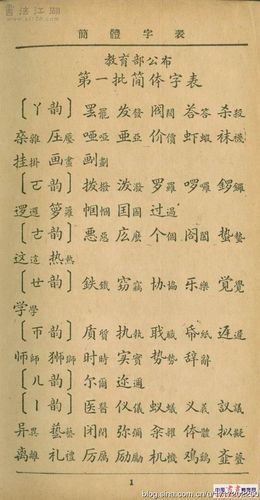 書法江湖
簡體字表
教育部公布
第一批简体字表
〔ㄚ韵〕罢罷 发發 阀閥 荅答 杀殺
杂雜 压壓 哑啞 亚亞 价價 虾蝦 袜襪
挂掛 画畫 劃
〔ㄛ韵〕拨撥 泼潑 罗羅 啰囉 鑼
逻邏 箩籮 帼幗 囯國 过過
〔ㄜ韵〕恶惡 庅麼 个個 阁閣 蛰蟄
这這 热熱
〔ㄝ韵〕鉄鐵 窃竊 协協 乐樂 覚覺
学學
〔ㄭ韵〕质質 执執 职職 帋紙 迟遲
师師 狮獅 时時 实實 势勢 辞辭
〔ㄦ韵〕尔爾 迩邇
〔ㄧ韵〕医醫 仪儀 蚁蟻 义義 議
异異 艺藝 闭閉 弥彌 籴糴 体體 拟擬
离離 礼禮 厉厲 励勵 机機 鸡鷄
1